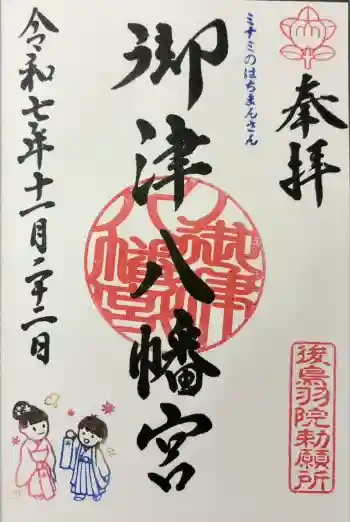 奉拝
後鳥羽院勅願所
ミナミのはちまんさん
御津八幡宮
御津八幡宮
令和七年十一月二十二日